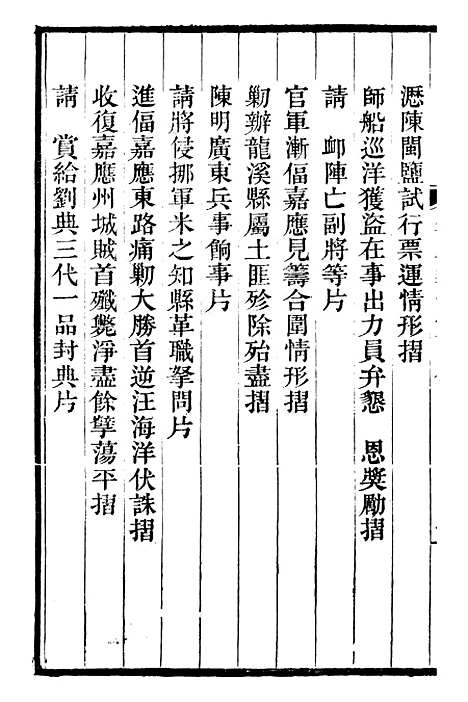 瀝陳閩鹽試行票運情形摺
師船巡洋獲盜在事出力員弁懇　恩獎勵摺
請　卹陣亡副將等片
官軍漸偪嘉應見籌合圍情形摺
勦辦龍溪縣屬土匪殄除殆盡摺
陳明廣東兵事餉事片
請將侵挪軍米之知縣革職拏問片
進偪嘉應東路痛勦大勝首逆汪海洋伏誅摺
收復嘉應州城賊首殲斃淨盡餘孽蕩平摺
請　賞給劉典三代一品封典片